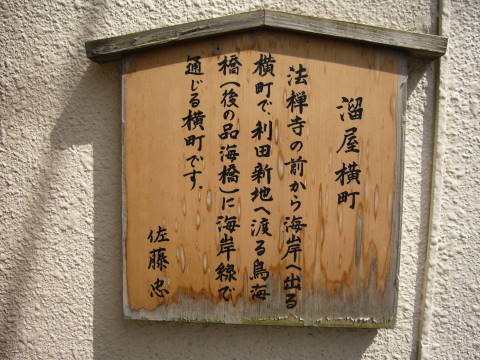 溜屋横町
法禅寺の前から海岸へ出る
横町で、利田新地へ渡る鳥海
橋(後の品海橋)に海岸線で
通じる横町です。
佐藤忠